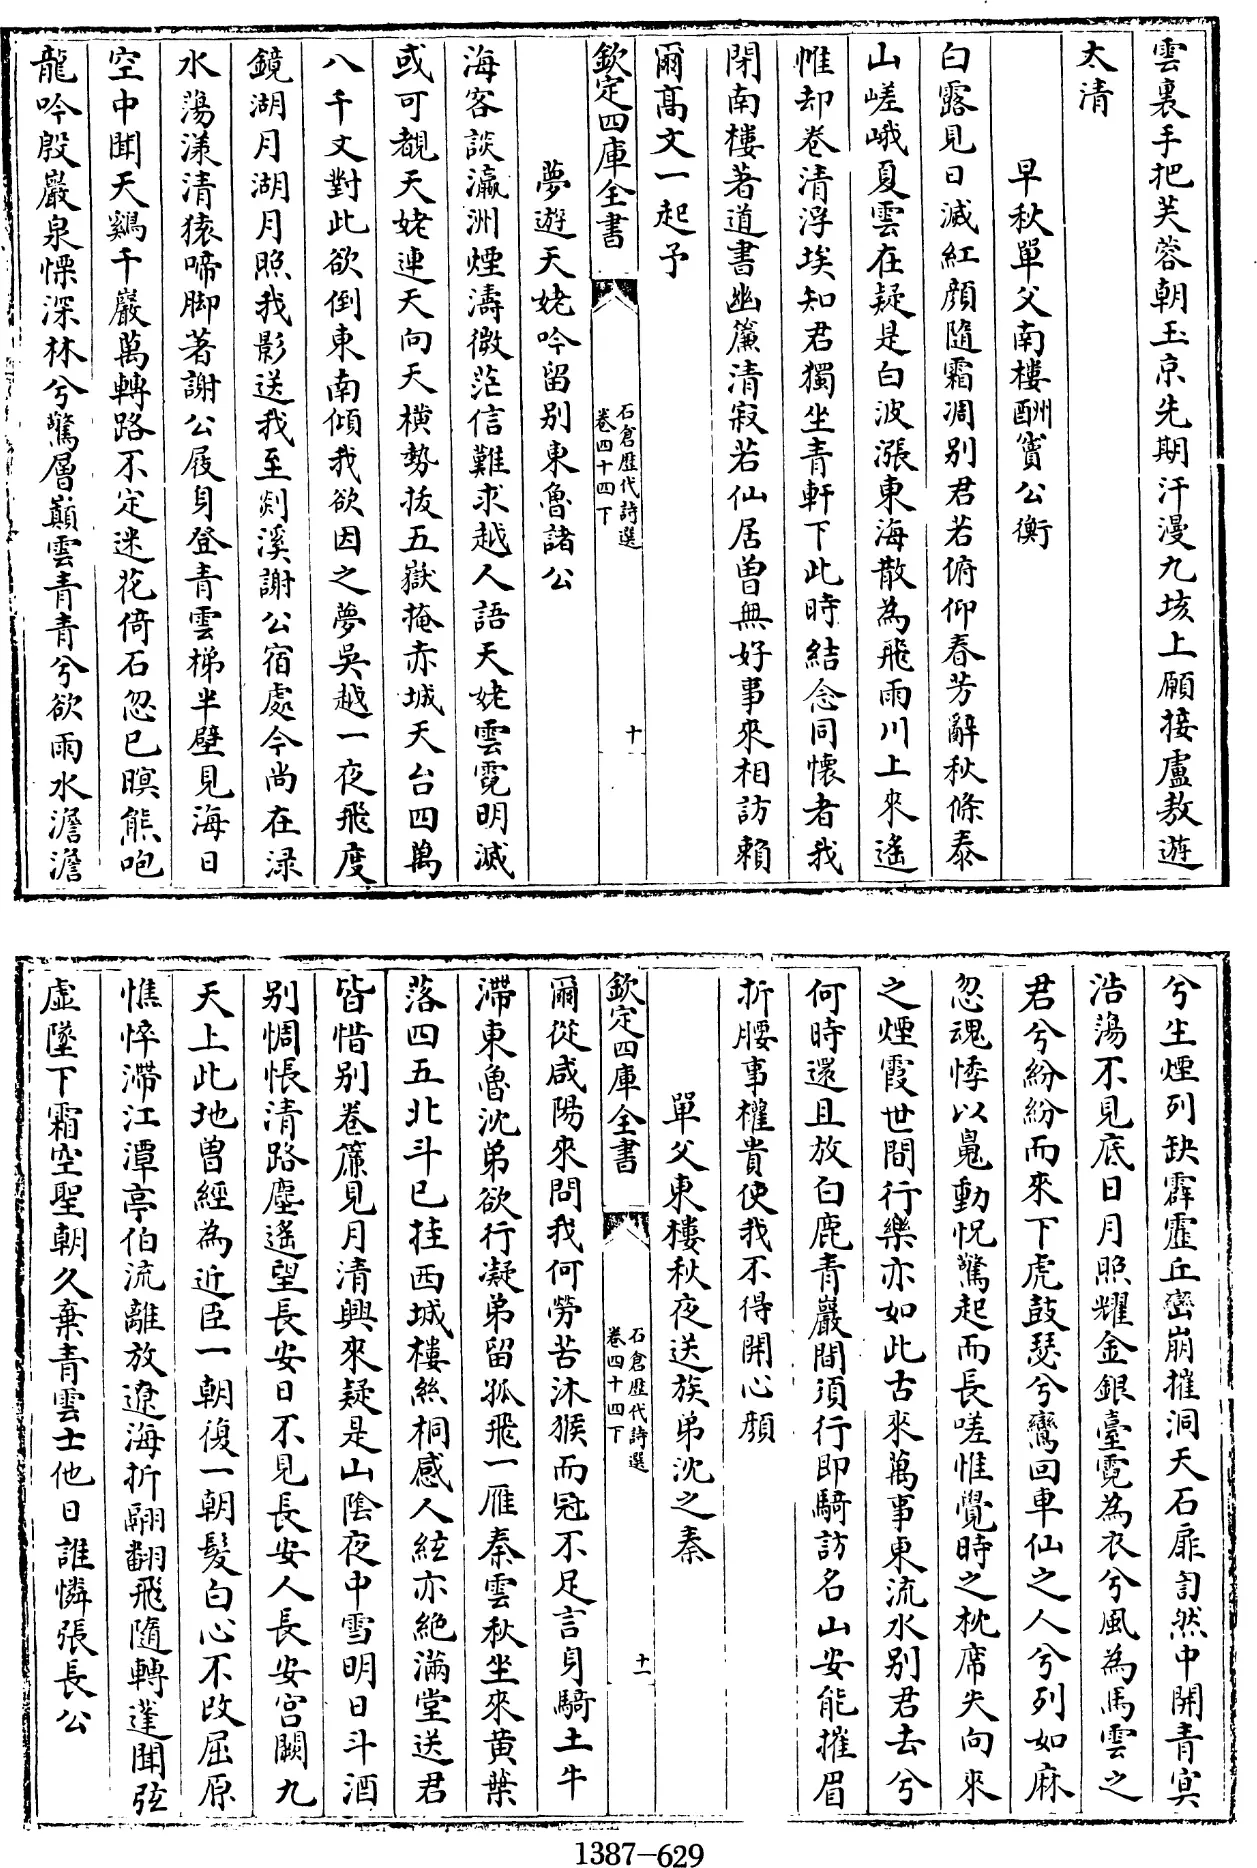 雲裏手把芙蓉朝玉京先期汗漫九垓上願接盧敖遊
太清
早秋單父南樓酬竇公衡
白露見日滅紅顔隨霜凋别君若俯仰春芳辭秋條泰
山嵯峨夏雲在疑是白波漲東海散為飛雨川上來遙
帷却卷清浮埃知君獨坐青軒下此時結念同懷者我
閉南樓著道書幽簾清寂若仙居曽無好事來相訪賴
爾髙文一起予
欽定四庫全書
石倉歴代詩選
卷四十四下
十
夢遊天姥吟留别東魯諸公
海客談瀛洲煙濤微茫信難求越人語天姥雲霓明滅
或可覩天姥連天向天横勢拔五嶽掩赤城天台四萬
八千丈對此欲倒東南傾我欲因之夢吳越一夜飛度
鏡湖月湖月照我影送我至剡溪謝公宿處今尚在渌
水蕩漾清猿啼脚著謝公屐身登青雲梯半壁見海日
空中聞天鷄千巖萬轉路不定迷花倚石忽已暝熊咆
龍吟殷巖泉慄深林兮驚層巔雲青青兮欲雨水澹澹
兮生煙列缺霹靂丘巒崩摧洞天石扉訇然中開青㝠
浩蕩不見底日月照耀金銀臺霓為衣兮風為馬雲之
君兮紛紛而來下虎鼓瑟兮鸞回車仙之人兮列如麻
忽魂悸以鬼動怳驚起而長嗟惟覺時之枕席失向來
之煙霞世間行樂亦如此古來萬事東流水别君去兮
何時還且放白鹿青巖間須行即騎訪名山安能摧眉
折腰事權貴使我不得開心顔
單父東樓秋夜送族弟沈之秦
欽定四庫全書
石倉歴代詩選
卷四十四下
十一
爾從咸陽來問我何勞苦沐猴而冠不足言身騎土牛
滯東魯沈弟欲行凝弟留孤飛一雁秦雲秋坐來黄葉
落四五北斗已挂西城樓絲桐感人絃亦絶滿堂送君
皆惜别卷簾見月清興來疑是山陰夜中雪明日斗酒
别惆悵清路塵遙望長安日不見長安人長安宫闕九
天上此地曽經為近臣一朝復一朝髮白心不改屈原
憔悴滯江潭亭伯流離放遼海折翮翻飛隨轉蓬聞弦
虚墜下霜空聖朝久棄青雲士他日誰憐張長公
1387-629